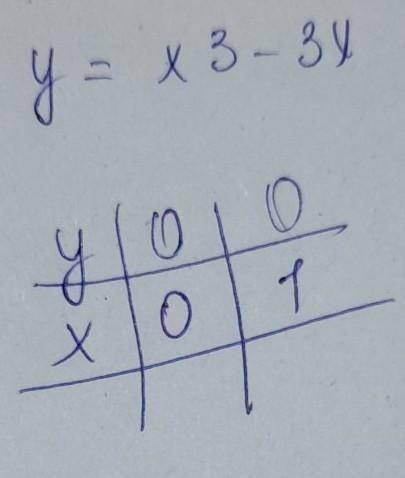 y = x 3 - 3x
y | 0 | 0
x | 0 | 1